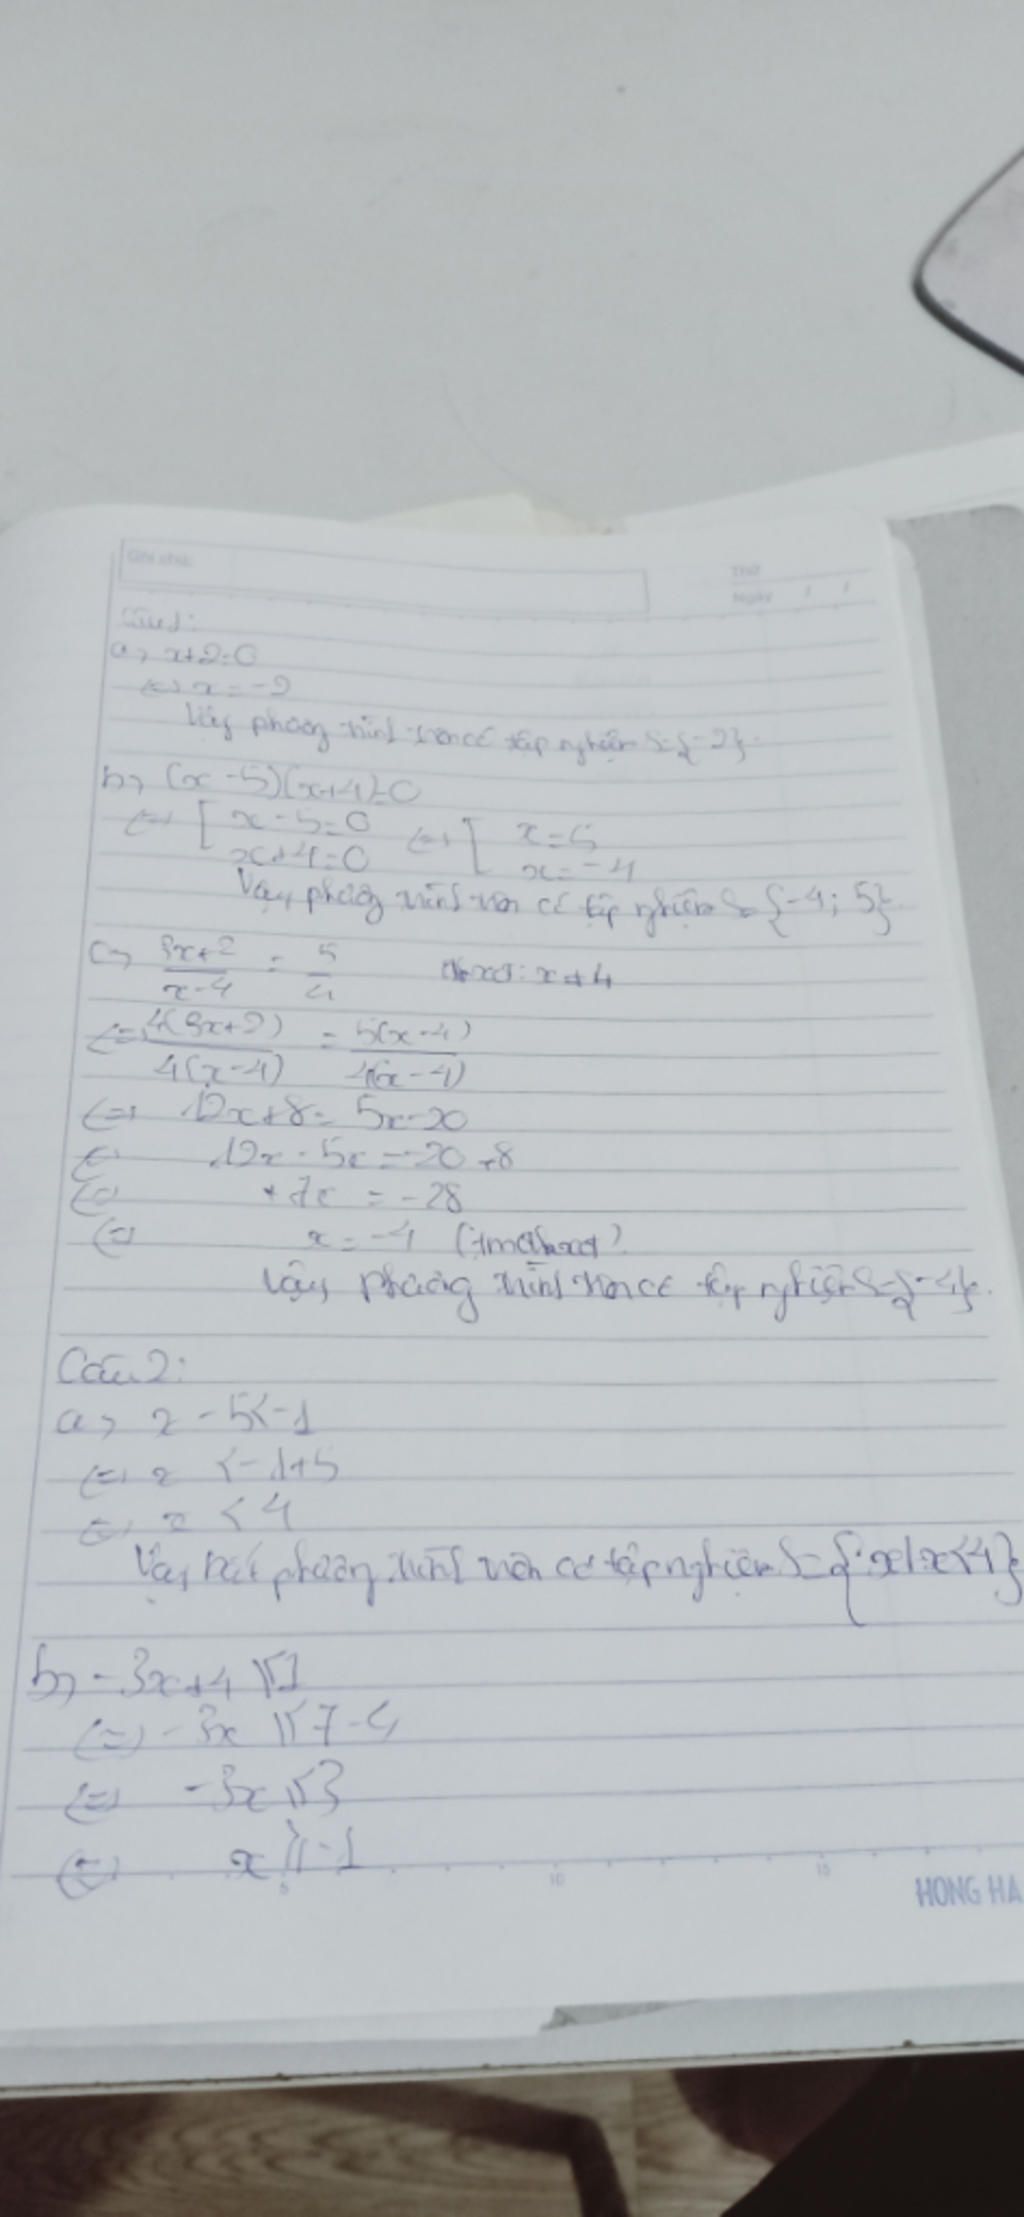 Ghi chú:
Thứ
Ngày / /
Câu 1:
a, x+2=0
<=> x = -2
Vậy phương trình trên có tập nghiệm S={-2}.
b, (x-5)(x+4)=0
<=> [ x-5=0 <=> [ x=5
x+4=0 x=-4
Vậy phương trình trên có tập nghiệm S={-4; 5}
c, 3x+2/x-4 = 5/4 đkxđ: x≠4
<=> 4(3x+2)/4(x-4) = 5(x-4)/4(x-4)
<=> 12x+8= 5x-20
<=> 12x-5x=-20-8
<=> 7x = -28
<=> x=-4 (tmđkxđ)
Vậy phương trình trên có tập nghiệm S={-4}.
Câu 2:
a, x-5<-1
<=> x <-1+5
<=> x < 4
Vậy bất phương trình trên có tập nghiệm S={x|x<4}
b, -3x+4 ≤7
<=> -3x ≤ 7-4
<=> -3x ≤3
<=> x ≥-1
5 10 15
HONG HA